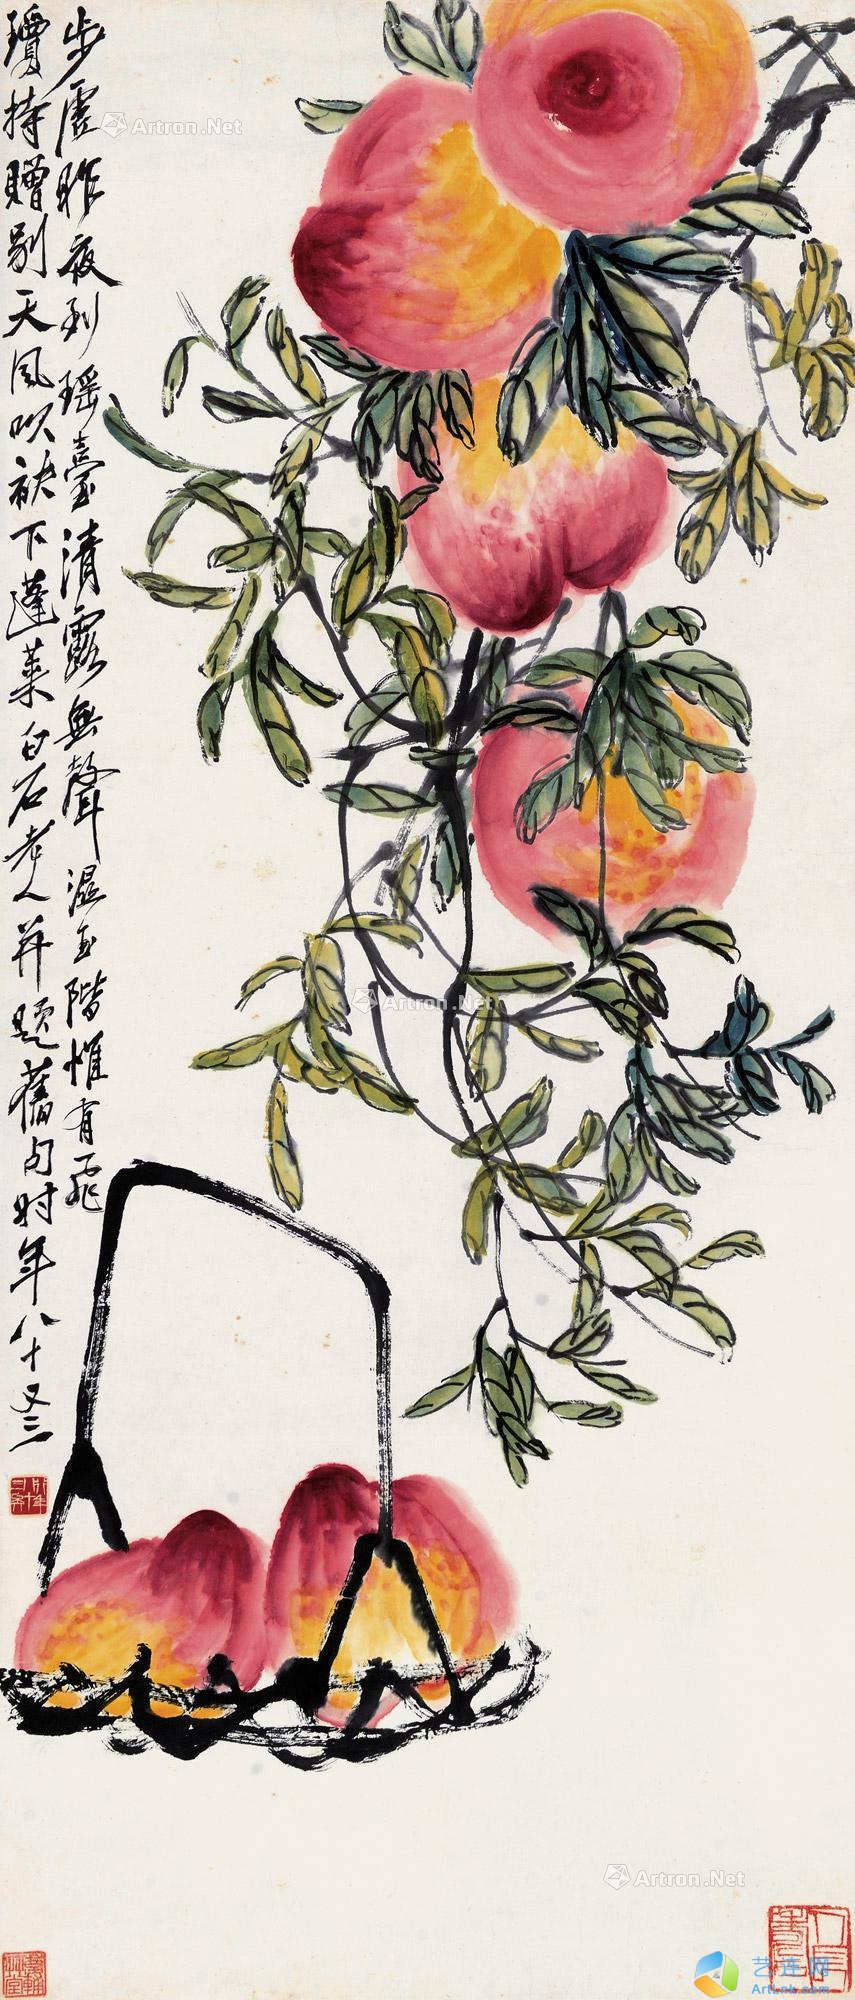 步虛昨夜到瑤臺清露無聲濕玉階惟有飛
瓊持贈別天風吹袂下蓬萊白石老人并題舊句时年八十又三
Artron.Net
Artron.Net
Artron.Net
艺连网
ArtLnk.com